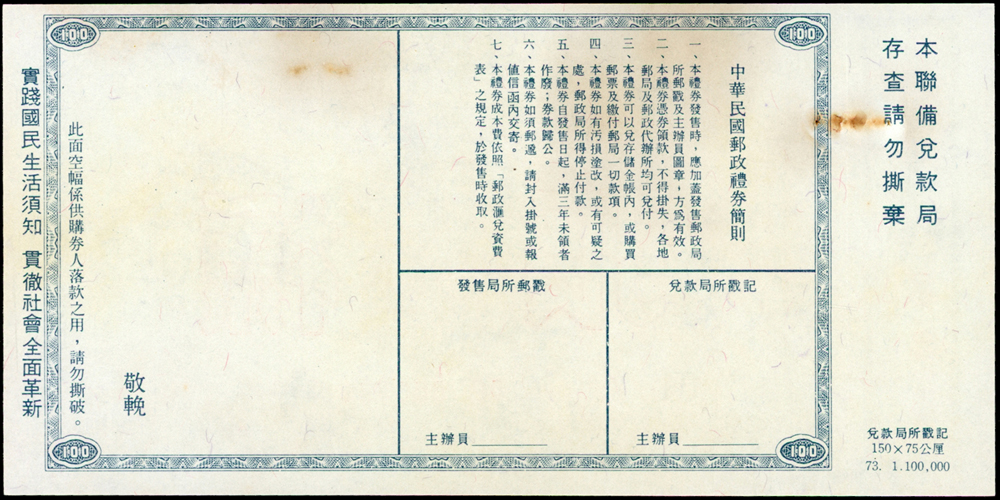 本聯備兌款局
存查請勿撕棄
兌款局所戳記
150×75公厘
73. 1.100,000
100
100
100
100
中華民國郵政禮券簡則
一、本禮券發售時，應加蓋發售郵政局
所郵戳及主辦員圖章，方爲有效。
二、本禮券憑券領款，不得掛失，各地
郵局及郵政代辦所均可兌付。
三、本禮券可以兌存儲金帳內，或購買
郵票及繳付郵局一切款項。
四、本禮券如有汚損塗改，或有可疑之
處，郵政局所得停止付款。
五、本禮券自發售日起，滿三年未領者
作廢；券款歸公。
六、本禮券如須郵遞，請封入掛號或報
値信函內交寄。
七、本禮券成本費依照「郵政滙兌資費
表」之規定，於發售時收取。
兌款局所戳記
主辦員
發售局所郵戳
主辦員
敬輓
此面空幅係供購券人落款之用，請勿撕破。
實踐國民生活須知 貫徹社會全面革新